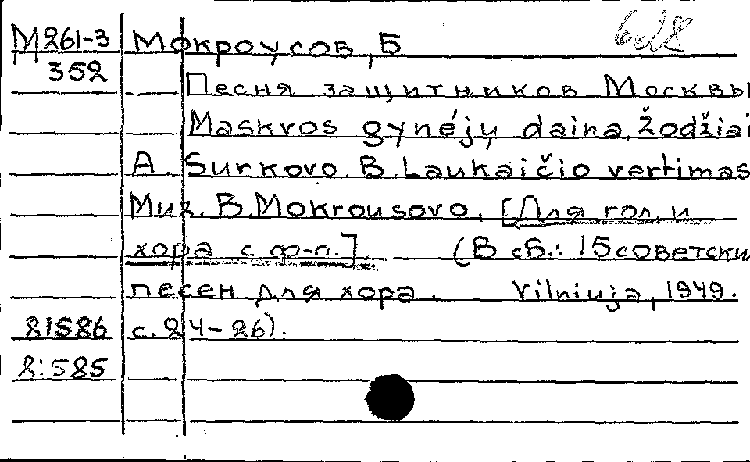 М261-3 Мокроусов, Б
352 Песня защитников Москвы
Maskvos gynėjų daina. Žodžiai
A. Surkovo. B. Laukaičio vertimas
Muz. B. Mokrousovo. [Для гол. и
хора с ф-п.] (В сб.: 15 советски
песен для хора. Vilniuja, 1949.
21586 с. 24-26).
2:585